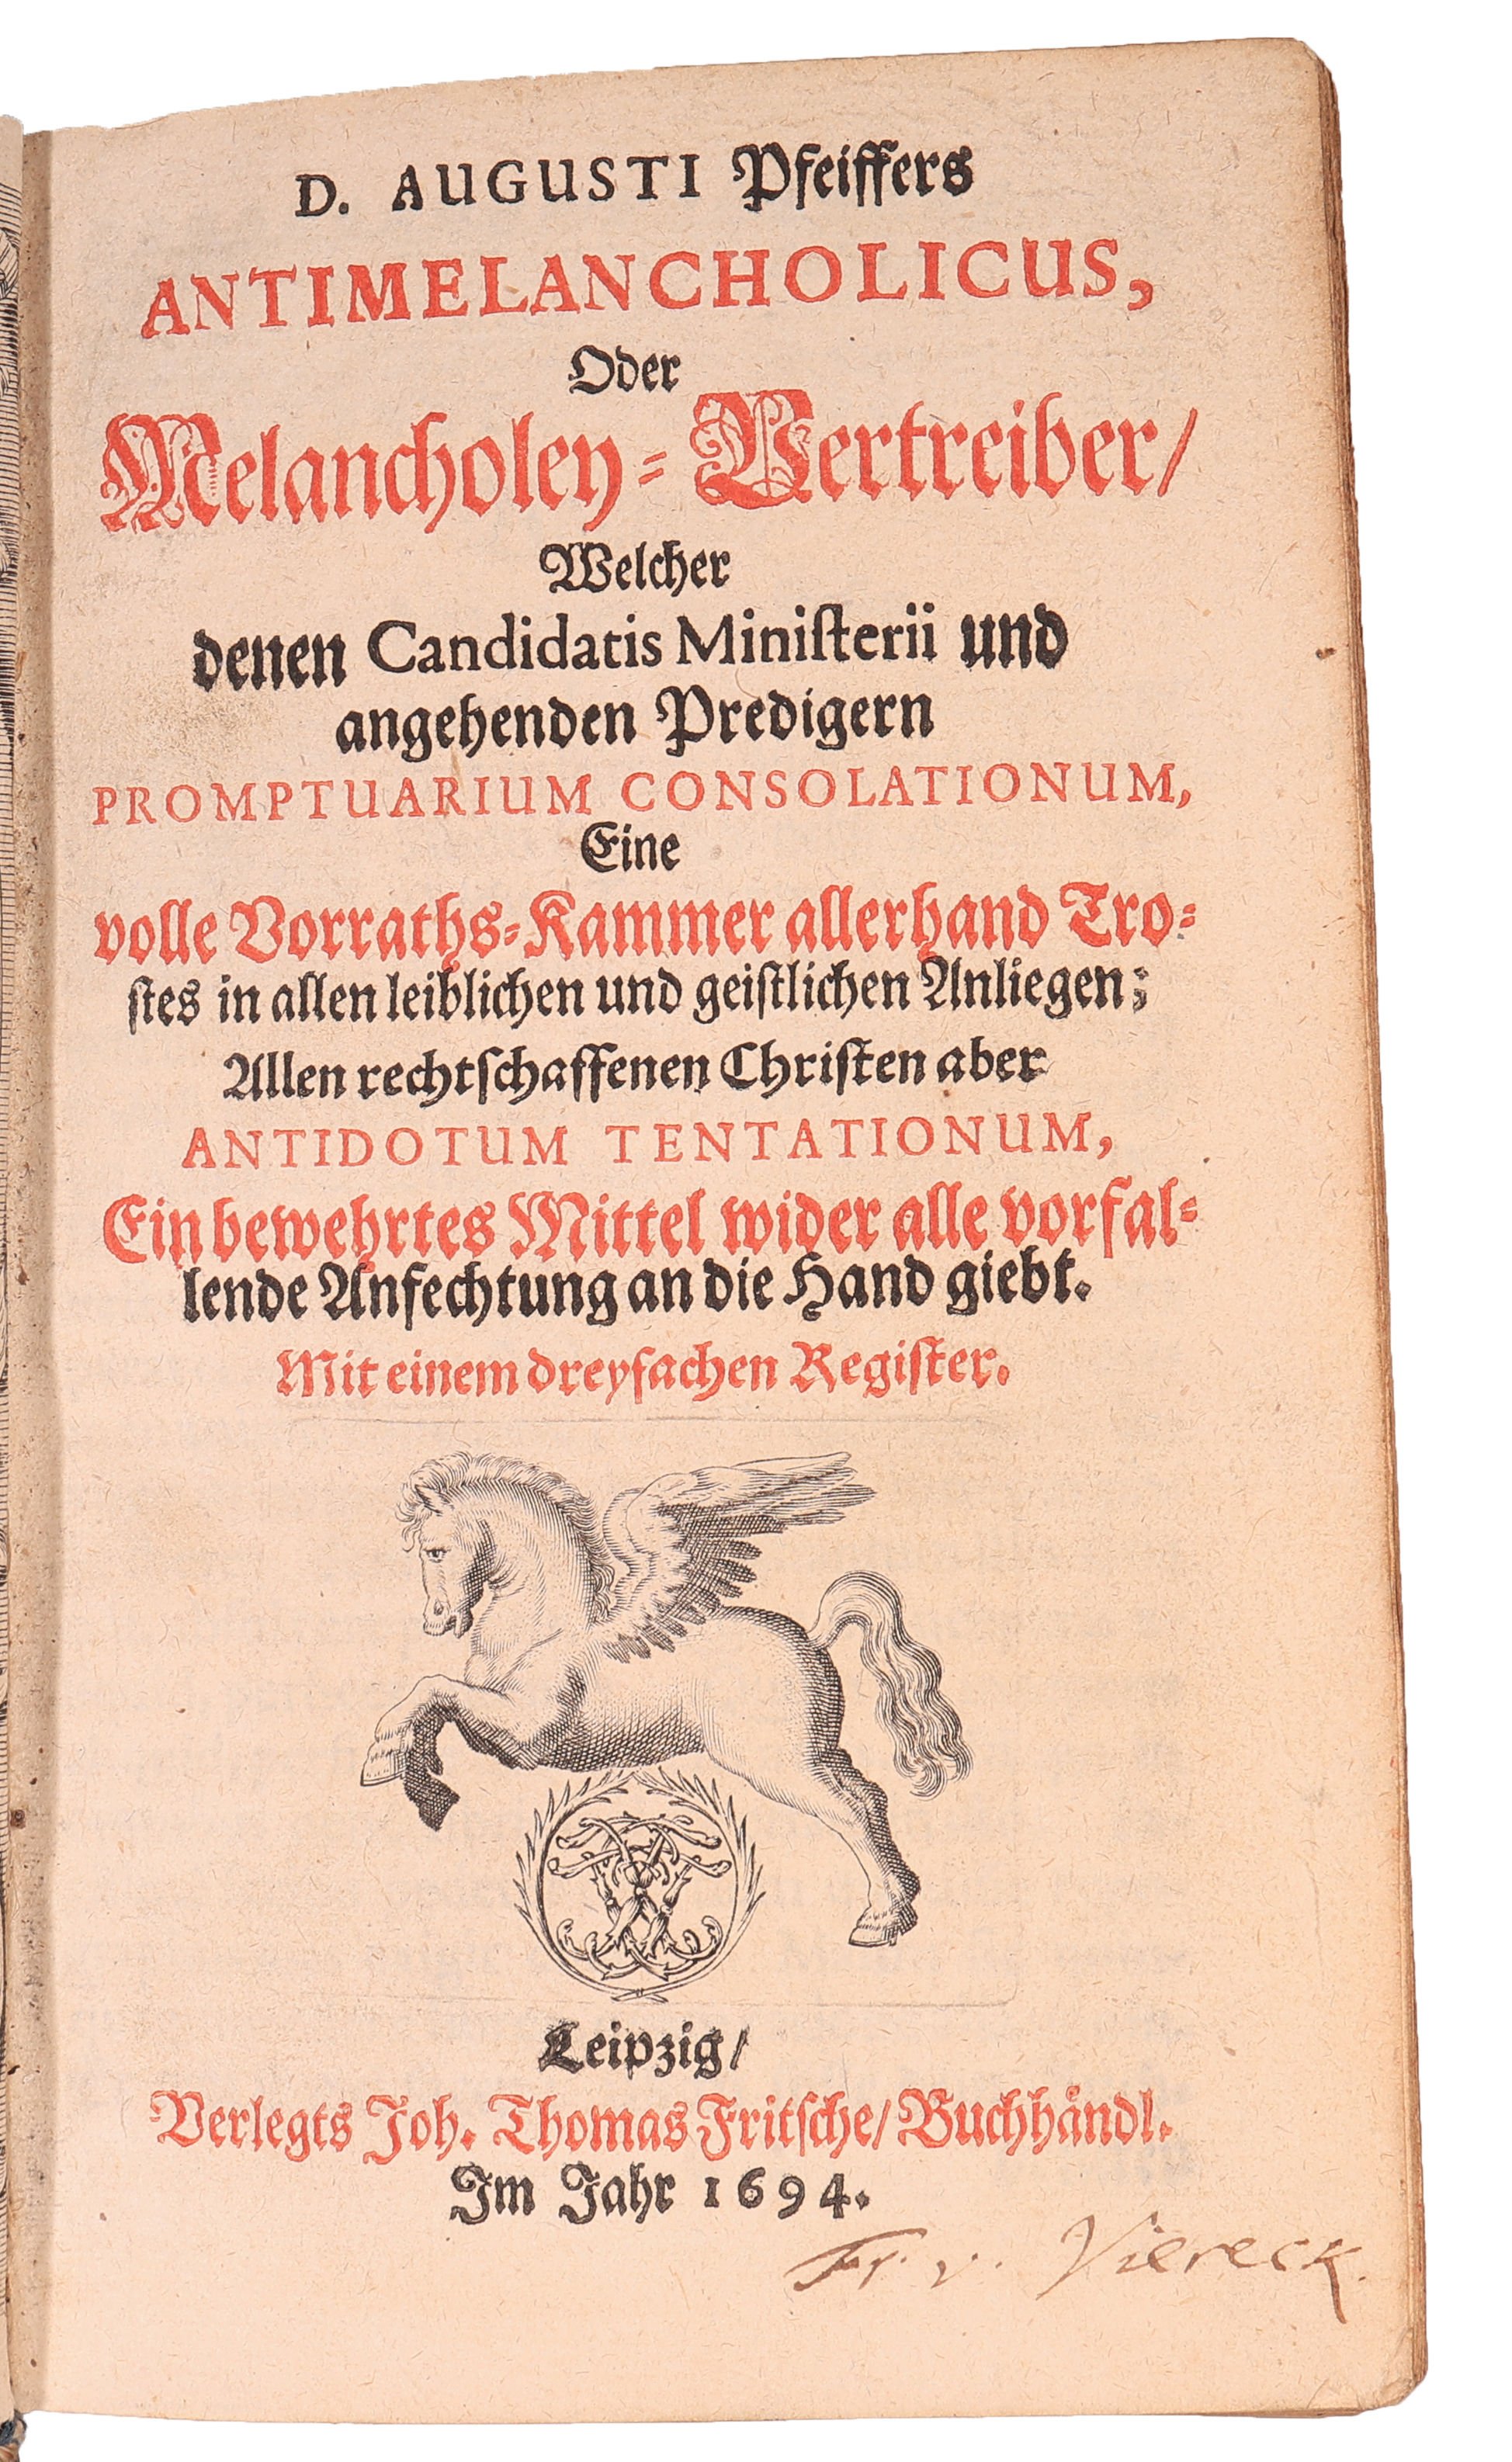 D. AUGUSTI Pfeiffers
ANTIMELANCHOLICUS,
Oder
Melancholey-Vertreiber/
Welcher
denen Candidatis Miniſterii und
angehenden Predigern
PROMPTUARIUM CONSOLATIONUM,
Eine
volle Vorraths-Kammer allerhand Tro-
ſtes in allen leiblichen und geiſtlichen Anliegen;
Allen rechtſchaffenen Chriſten aber
ANTIDOTUM TENTATIONUM,
Ein bewehrtes Mittel wider alle vorfal-
lende Anfechtung an die Hand giebt.
Mit einem dreyfachen Regiſter.
Leipzig/
Verlegts Joh. Thomas Fritſche/ Buchhåndl.
Im Jahr 1694.
Fr. v. Viereck.